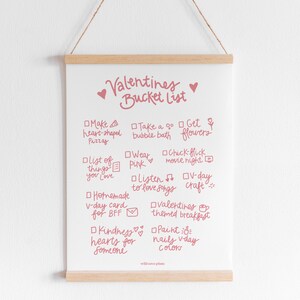 Valentines
Bucket List
Make heart-shaped
Take a bubble bath
Get flowers
List of things you love
Wear pink
Chick-flick movie night
Listen to love songs
V-day craft
Homemade v-day card for BFF
Valentines themed breakfast
Kindness hearts for someone
Paint nails v-day colors